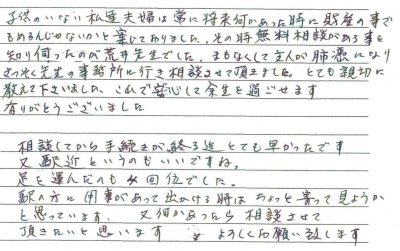 子供のいない私達夫婦は常に将来何かあった時に財産の事で
もめるんじゃないかと案じておりました。その時無料相談がある事を
知り伺ったのが荒井先生でした。まもなくして主人が肺癌になり
さっそく先生の事務所に行き相談させて頂きました。とても親切に
教えて下さいました。これで安心して余生を過ごせます
有りがとうございました
相談してから手続きが終る迄とても早かったです
又駅近というのもいいですね。
足を運んだのも4回位でした。
駅の方に用事があって出かける時はちょっと寄って見ようか
と思っています。又何かあったら相談させて
頂きたいと思います よろしくお願い致します